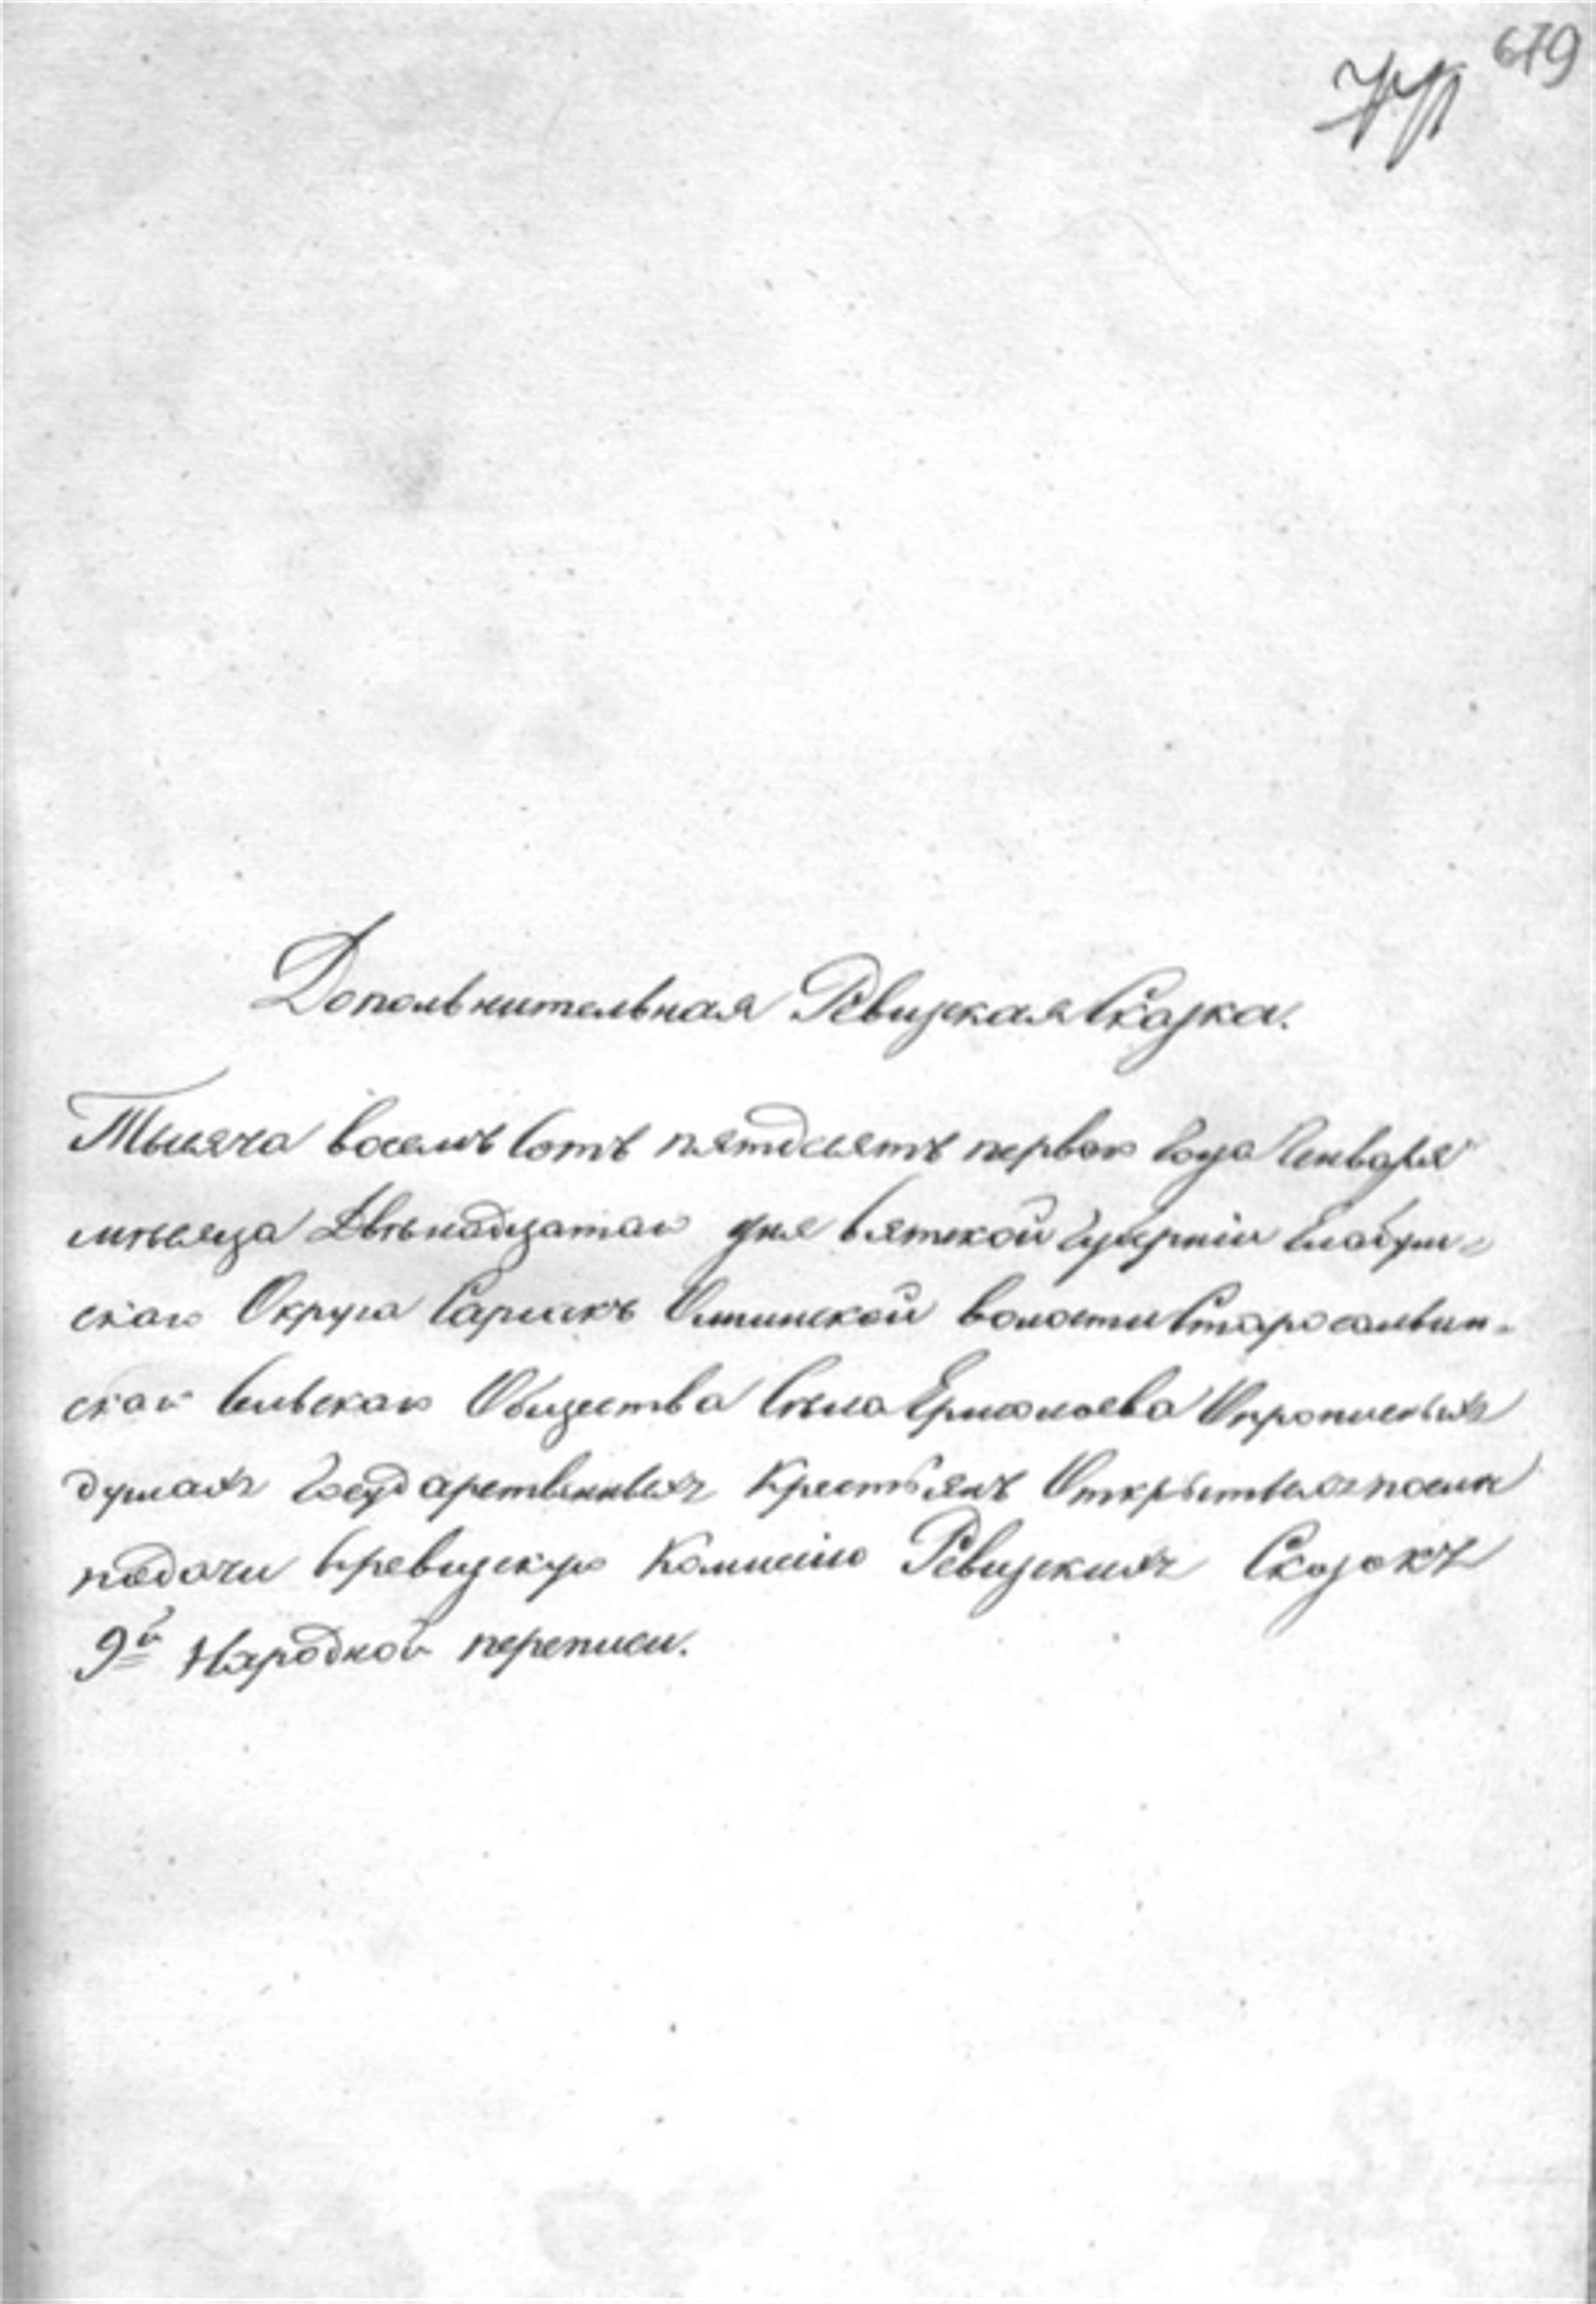 679
Дополнительная Ревизская Сказка.
Тысяча восемь сотъ пятдесятъ перваго Года Генваря
мѣсяца Двѣнадцатаго дня Вятской Губерніи Елабуж-
скаго Округа Сарсакъ Омгинской волости Старо
скаго Сельскаго Общества Села Ермолаева О прописныхъ
душахъ Государственныхъ Крестьянъ Открытыхъ после
подачи въ ревизскую Коммисію Ревизскихъ Сказокъ
9й Народной переписи.